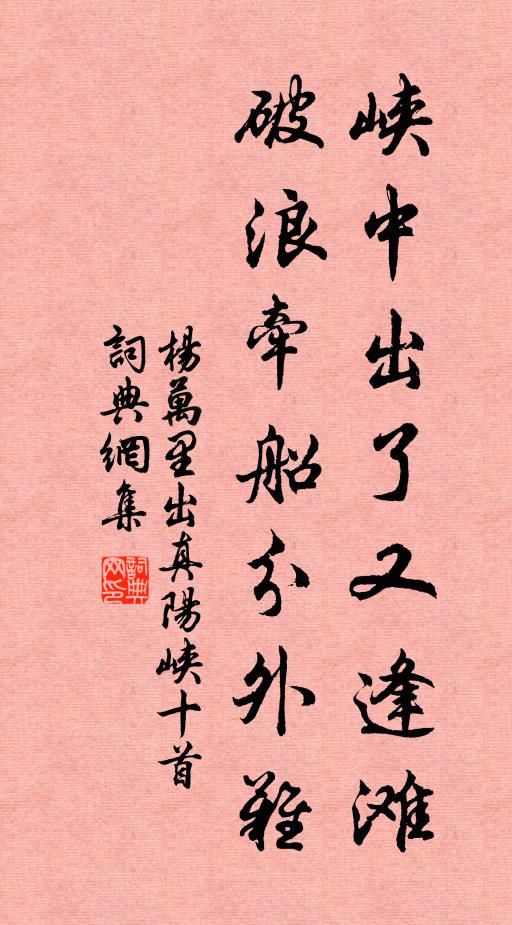 峡中出了又逢滩
破浪牵船分外难
楊萬里出真陽峡十首
詞典網集
詞典网印